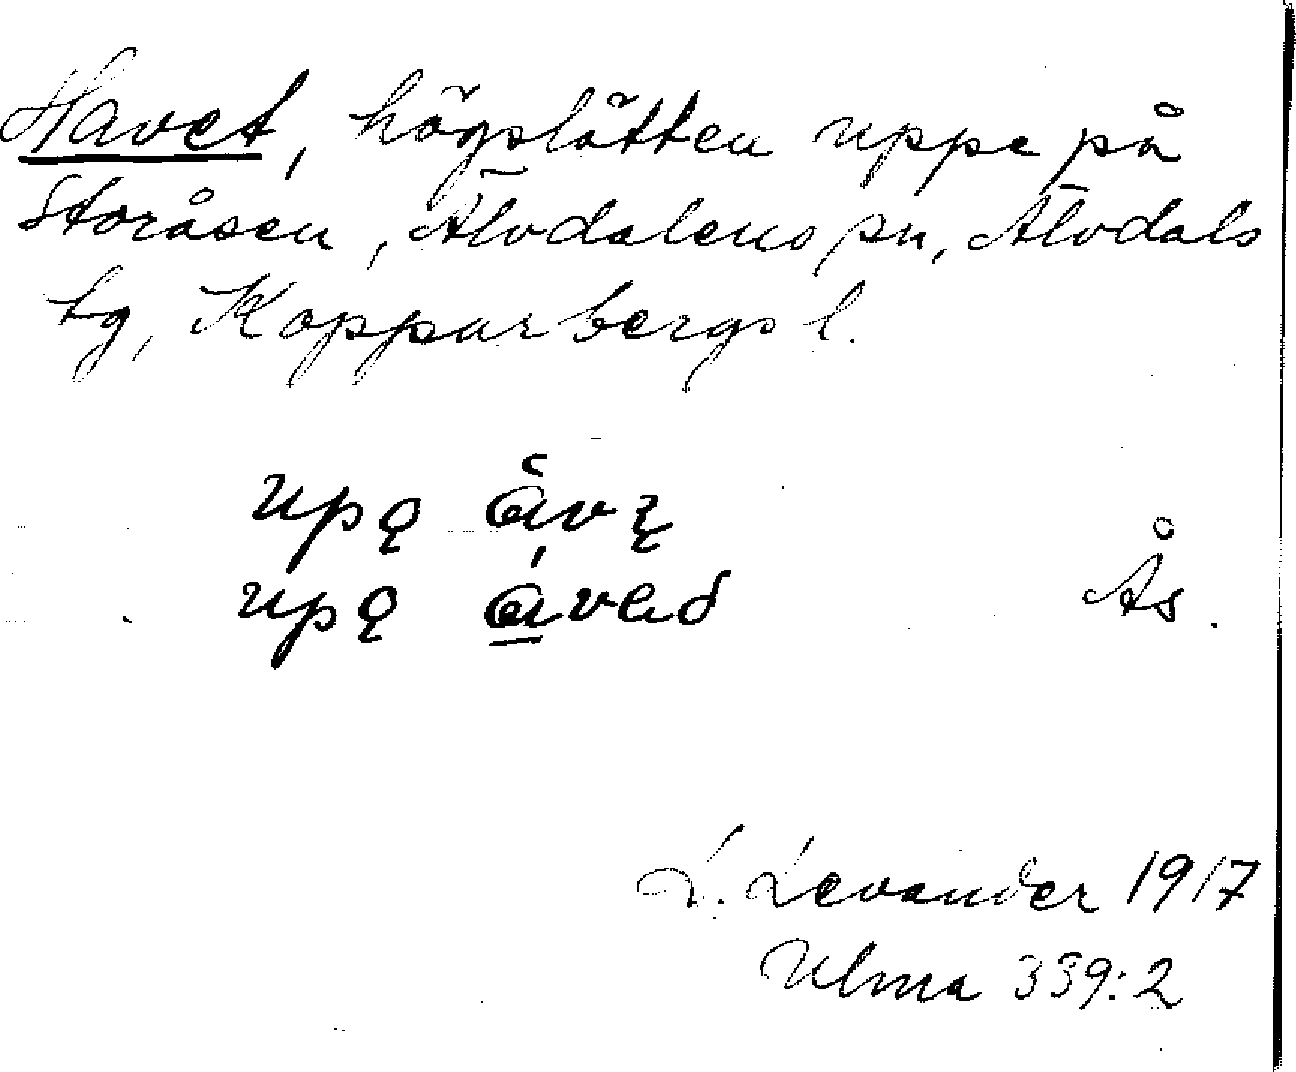 Havet, högslätten uppe på
Storåsen, Älvdalens sn, Älvdals
tg, Kopparbergs l.
Ås.
L. Levander 1917
Ulma 339:2